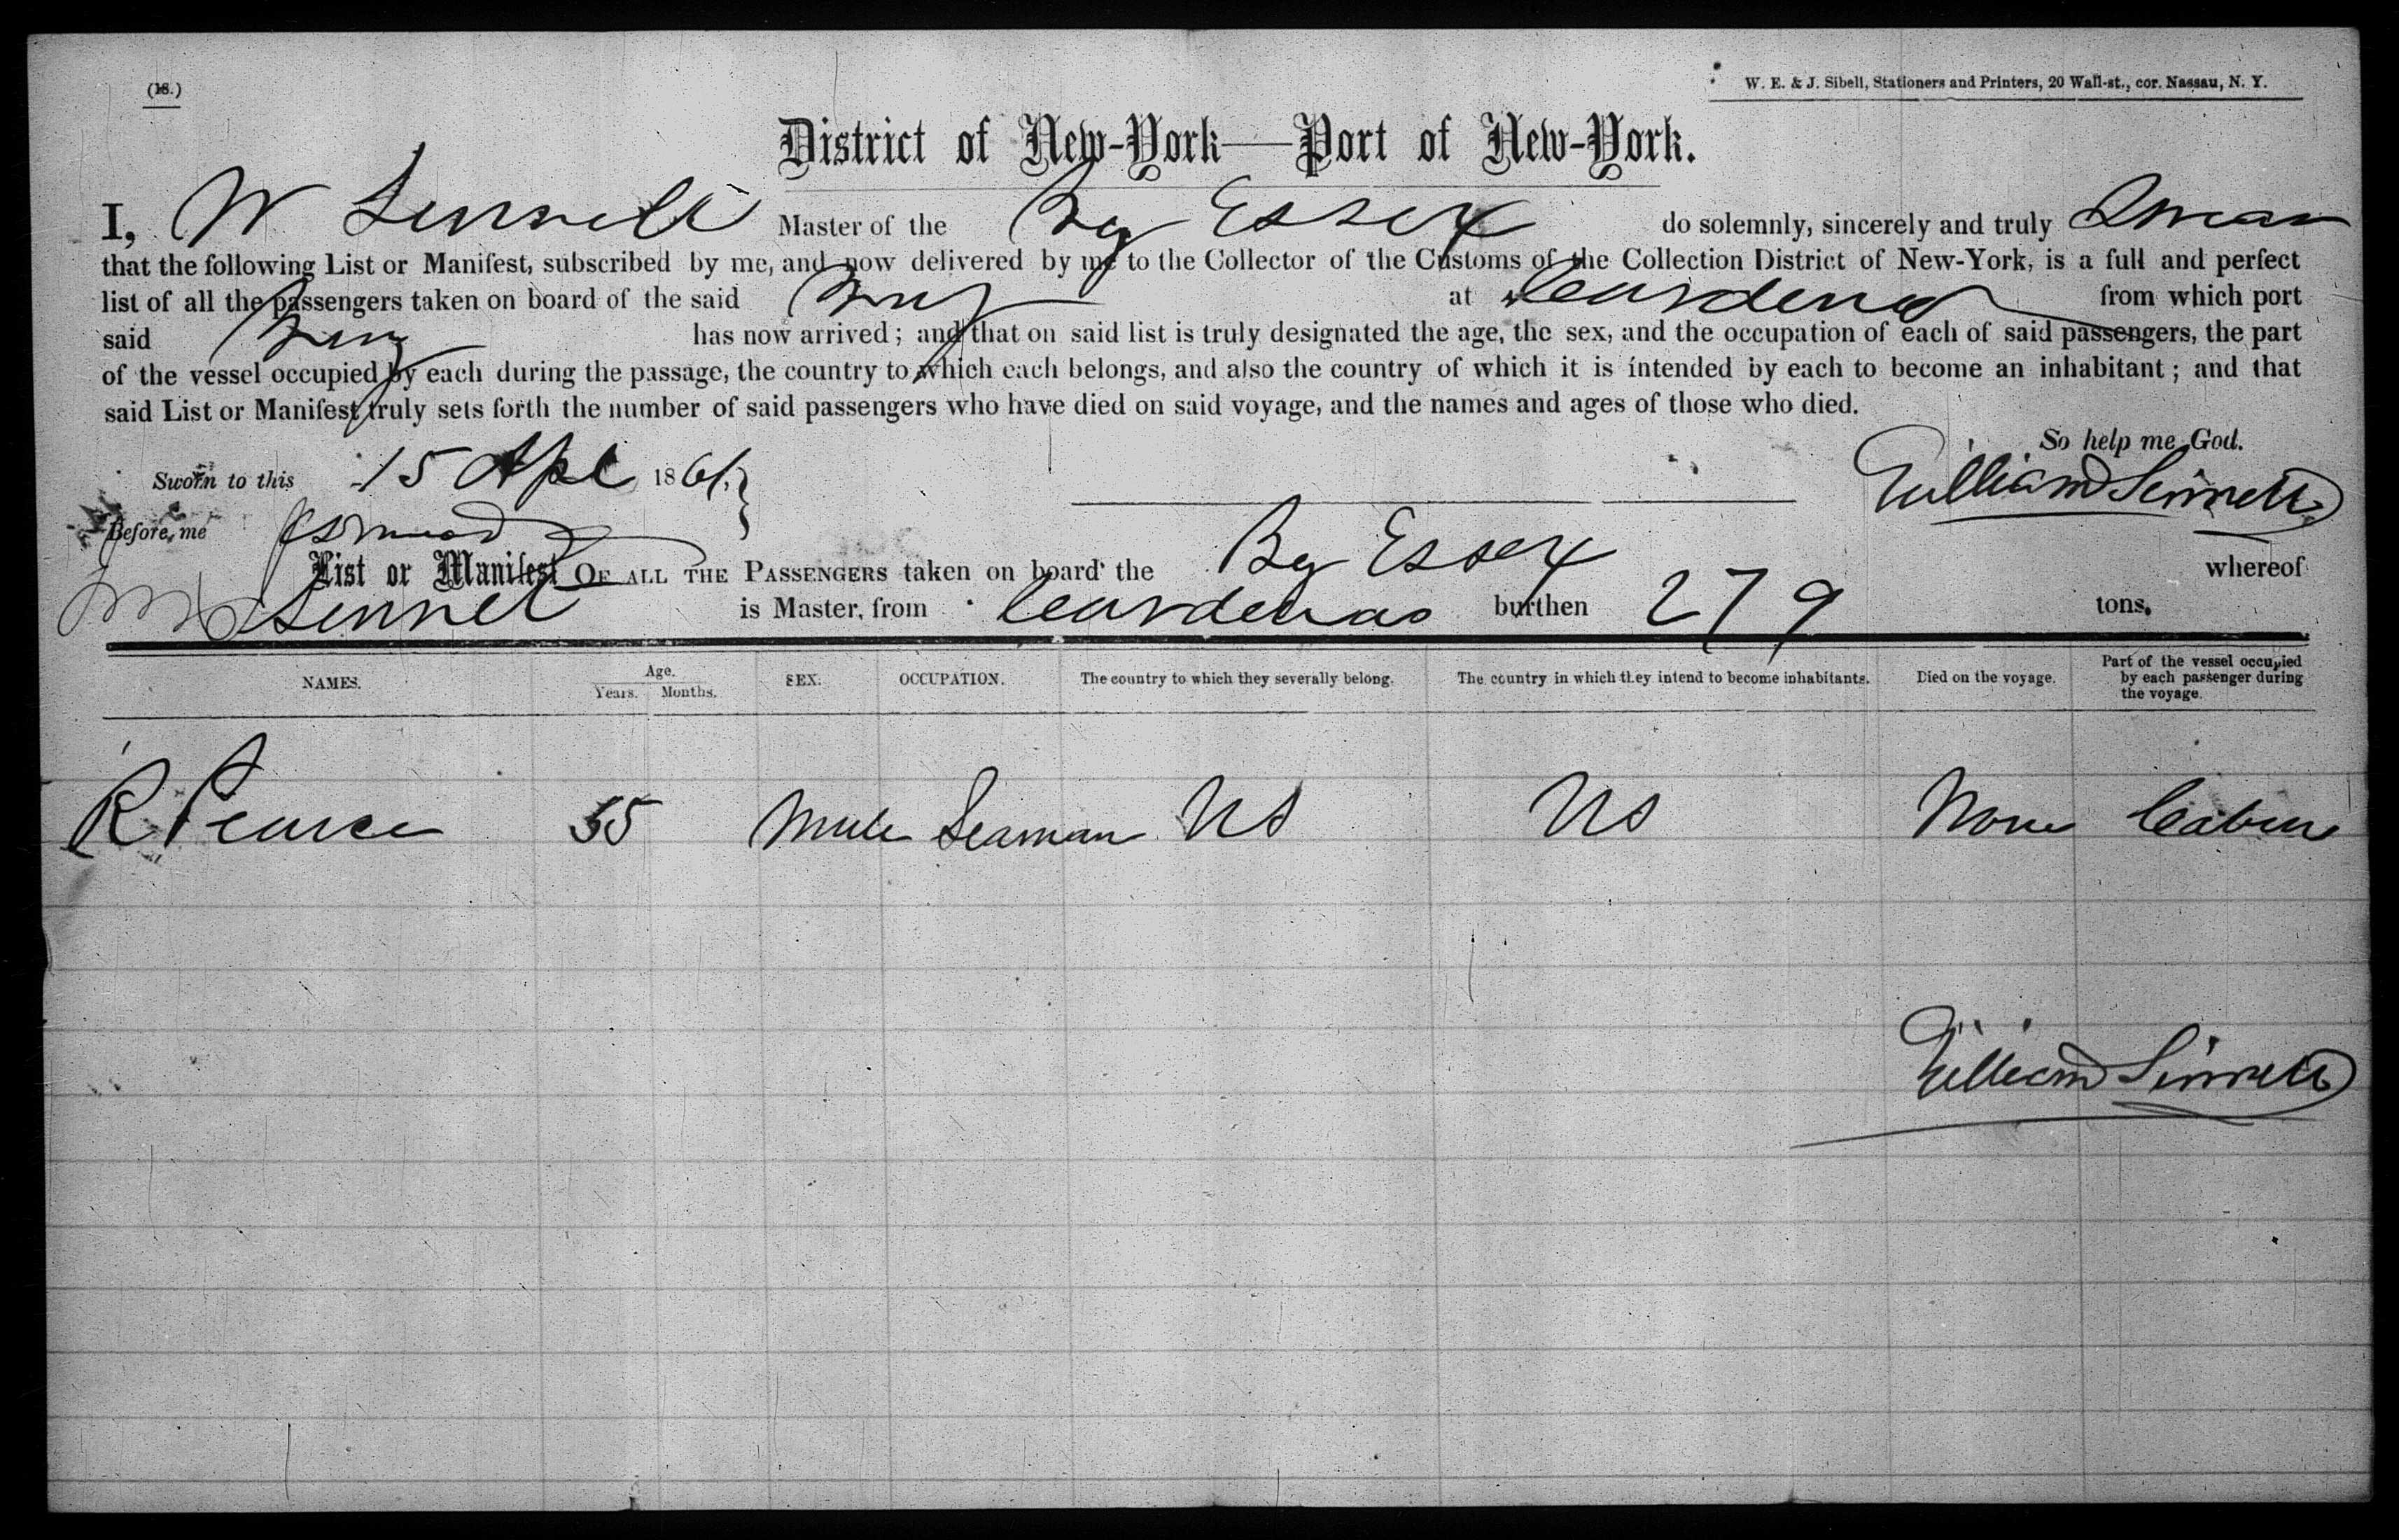 (18.)
W. E. & J. Sibell, Stationers and Printers, 20 Wall-st., cor. Nassau, N. Y.
District of New-York—Port of New-York.
I, W Sinnett Master of the Bg Essex do solemnly, sincerely and truly Swear
that the following List or Manifest, subscribed by me, and now delivered by me to the Collector of the Customs of the Collection District of New-York, is a full and perfect
list of all the passengers taken on board of the said Brig at Cardenas from which port
said Brig has now arrived; and that on said list is truly designated the age, the sex, and the occupation of each of said passengers, the part
of the vessel occupied by each during the passage, the country to which each belongs, and also the country of which it is intended by each to become an inhabitant; and that
said List or Manifest truly sets forth the number of said passengers who have died on said voyage, and the names and ages of those who died.
So help me God.
Sworn to this 15 Apl 1861, William Sinnett
Before me
List or Manifest OF ALL THE PASSENGERS taken on board the Bg Essex whereof
Sinnet is Master, from Cardenas burthen 279 tons.
NAMES. Age. Years. Months. SEX. OCCUPATION. The country to which they severally belong. The country in which they intend to become inhabitants. Died on the voyage. Part of the vessel occupied by each passenger during the voyage.
R Pearce 35 Male Seaman US US None Cabin
William Sinnett